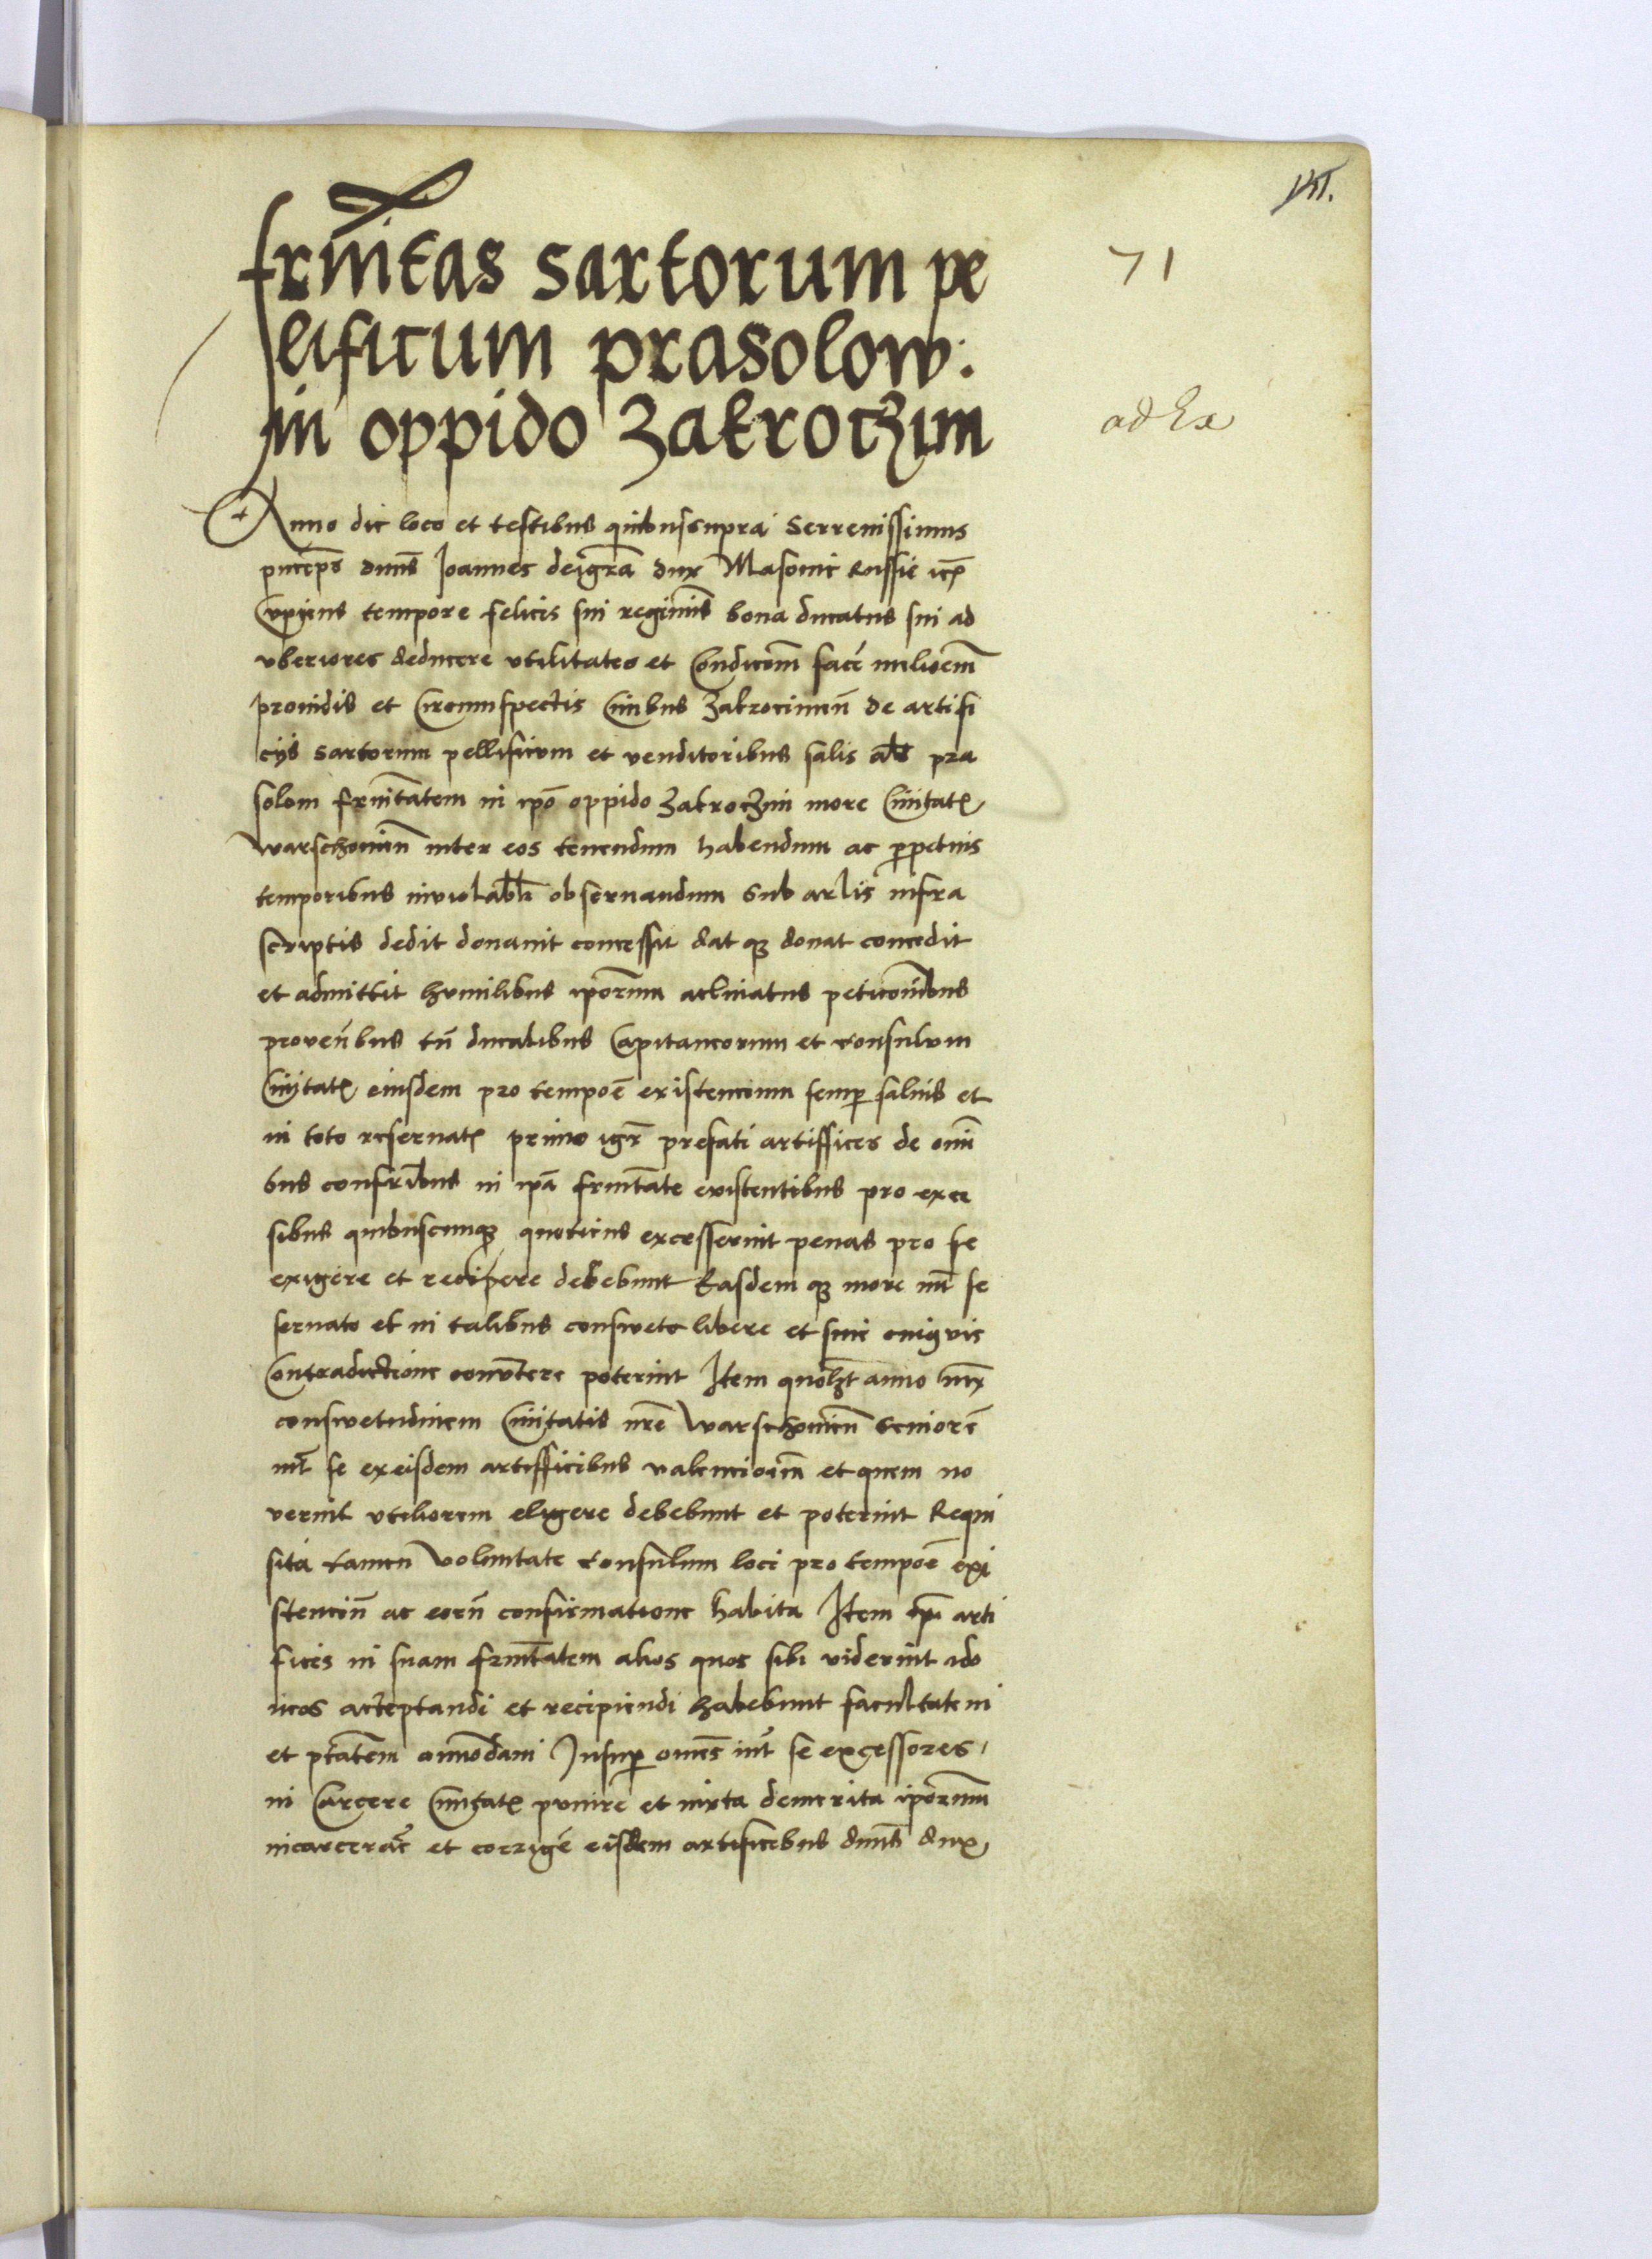 frnitas sartorum pe
lificum prasolow:
in oppido Zakroczim
71
ad Ex
Anno die loco et testibus quibus supra Serrenissimus
princeps dnns Joannes dei gra dux Masovie Russie
Cupiens tempore felicis sui regiminis bona ducatus sui ad
uberiores deducere utilitates et Condicom face meliorem
providis et Circumspectis Civibus Zakrocimen de artifi
cijs sartorum pellificum et venditoribus salis als pra
solom frnitatem in ipo oppido Zakroczim more Civitatis
Warschovien inter eos tenendum habendum ac perpetuis
temporibus inviolabli observandum sub arlis infra
scriptis dedit donavit concessit dat que donat concedit
et admittit humilibus iporum aclinatus peticonibus
proventibus tn ducalibus Capitaneorum et consulum
Civitatis eiusdem pro tempore existencium semper salvis et
in toto reservatis primo igr prefati artiffices de omi
bus confribus in ipa frnitate existentibus pro exce
sibus quibuscumque quociens excesserint penas pro se
exigere et recipere debebunt Easdem que more int se
servato et in talibus consweto libere et sine cuiqvis
Contradictione convtere poterint Item quolzt anno iux
conswetudinem Civitatis nre Warschovien seniore
int se ex eisdem artifficibus valenciorem et quem no
verint utiliorem eligere debebunt et poterint Requi
sita tamen voluntate consulum loci pro tempore exi
stencium ac eorum confirmatione habita Item ipi arti
fices in suam frnitatem alios quos sibi viderint ido
neos acceptandi et recipiendi habebunt facultatem
et ptatem amodam Insuper omnes int se excessores
in Carcere Civitatis punire et iuxta demerita iporum
incarcerare et corrige eisdem artificibus dnns dux